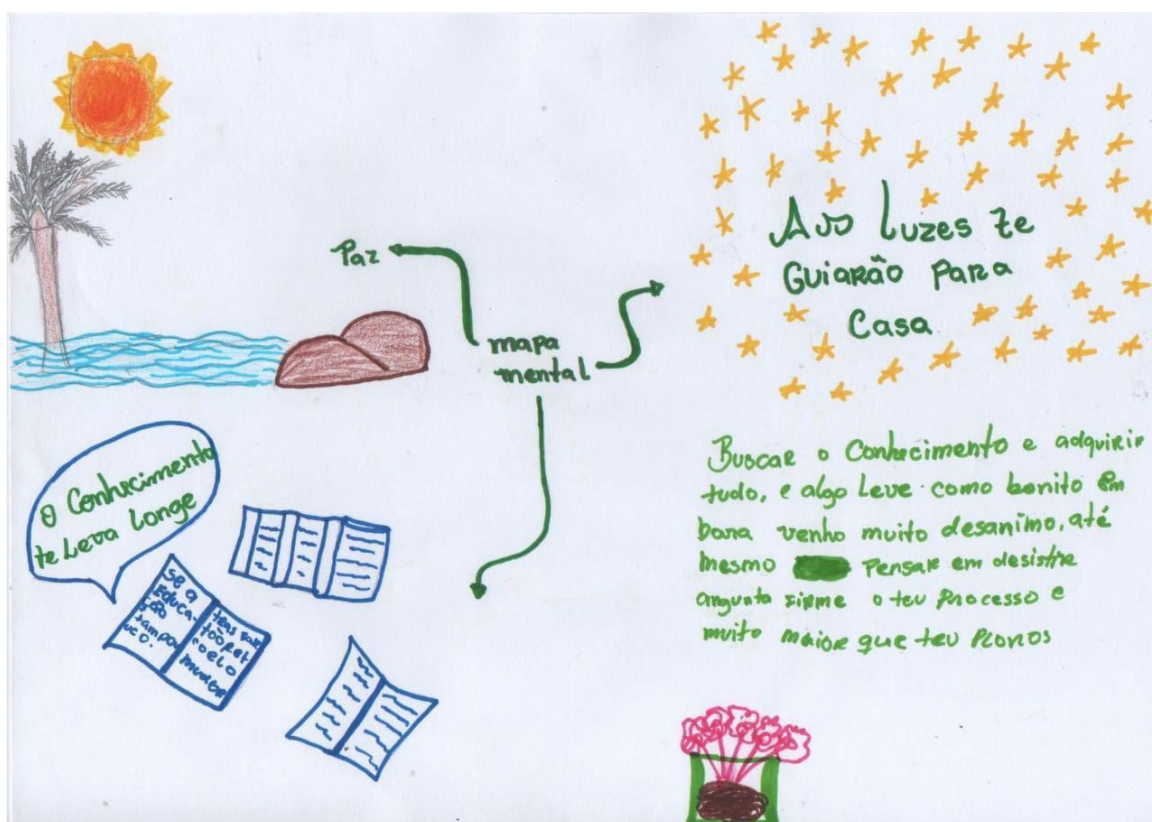 Paz
mapa
mental
Avs Luzes te
Guiarão Para
Casa
O Conhecimento
te Leva Longe
Se a
Educa-
ção
tampo
uco.
Buscar o Conhecimento e adquirir
tudo, e algo Leve como bonito Em
bora venho muito desanimo, até
mesmo Pensar em desistire
angunta firme o teu Processo e
muito maior que teu Planos